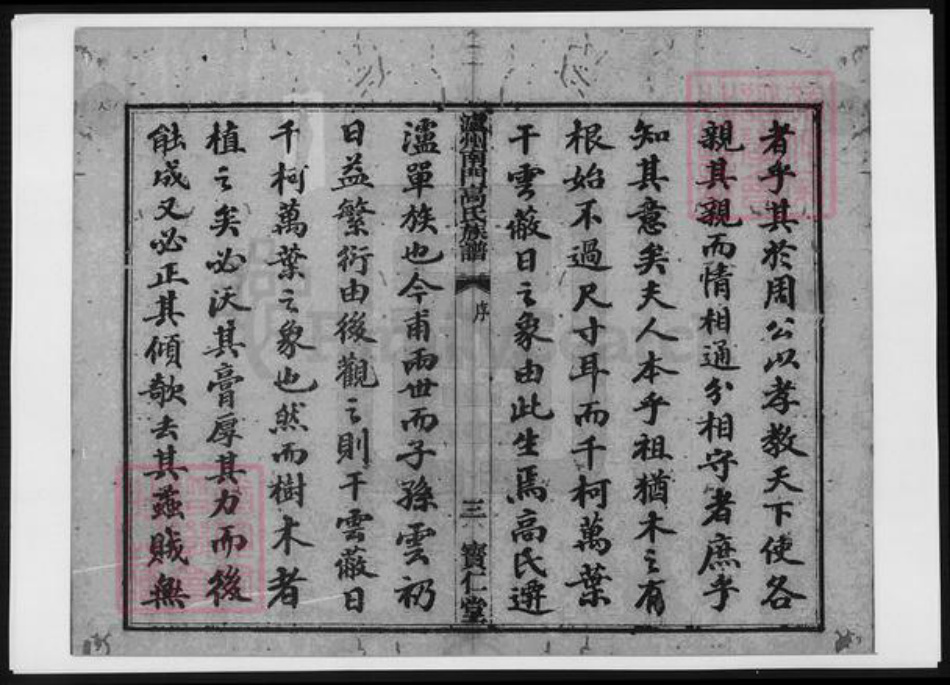 者乎其於周公以孝教天下使各
親其親而情相通分相守者庶乎
知其意矣夫人本乎祖猶木之有
根始不過尺寸耳而千柯萬葉
干雲蔽日之象由此生焉高氏遷
瀘州南門高氏族譜 序 三 寳仁堂
瀘單族也今甫兩世而子孫雲礽
日益繁衍由後觀之則干雲蔽日
千柯萬葉之象也然而樹木者
植之矣必沃其膏厚其力而後
能成又必正其傾欹去其蟊賊無